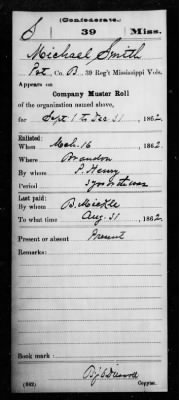 (Confederate.)
S 39 Miss.
Michael Smith
Pvt, Co. B, 39 Reg't Mississippi Vols.
Appears on
Company Muster Roll
of the organization named above,
for Sept 1 to Dec 31, 1862.
Enlisted:
When Mch. 16, 1862.
Where Brandon
By whom P. Henry
Period 3 yrs or the war
Last paid:
By whom B. Mickle
To what time Aug. 31, 1862.
Present or absent Present
Remarks:
Book mark:
(642) Copyist.